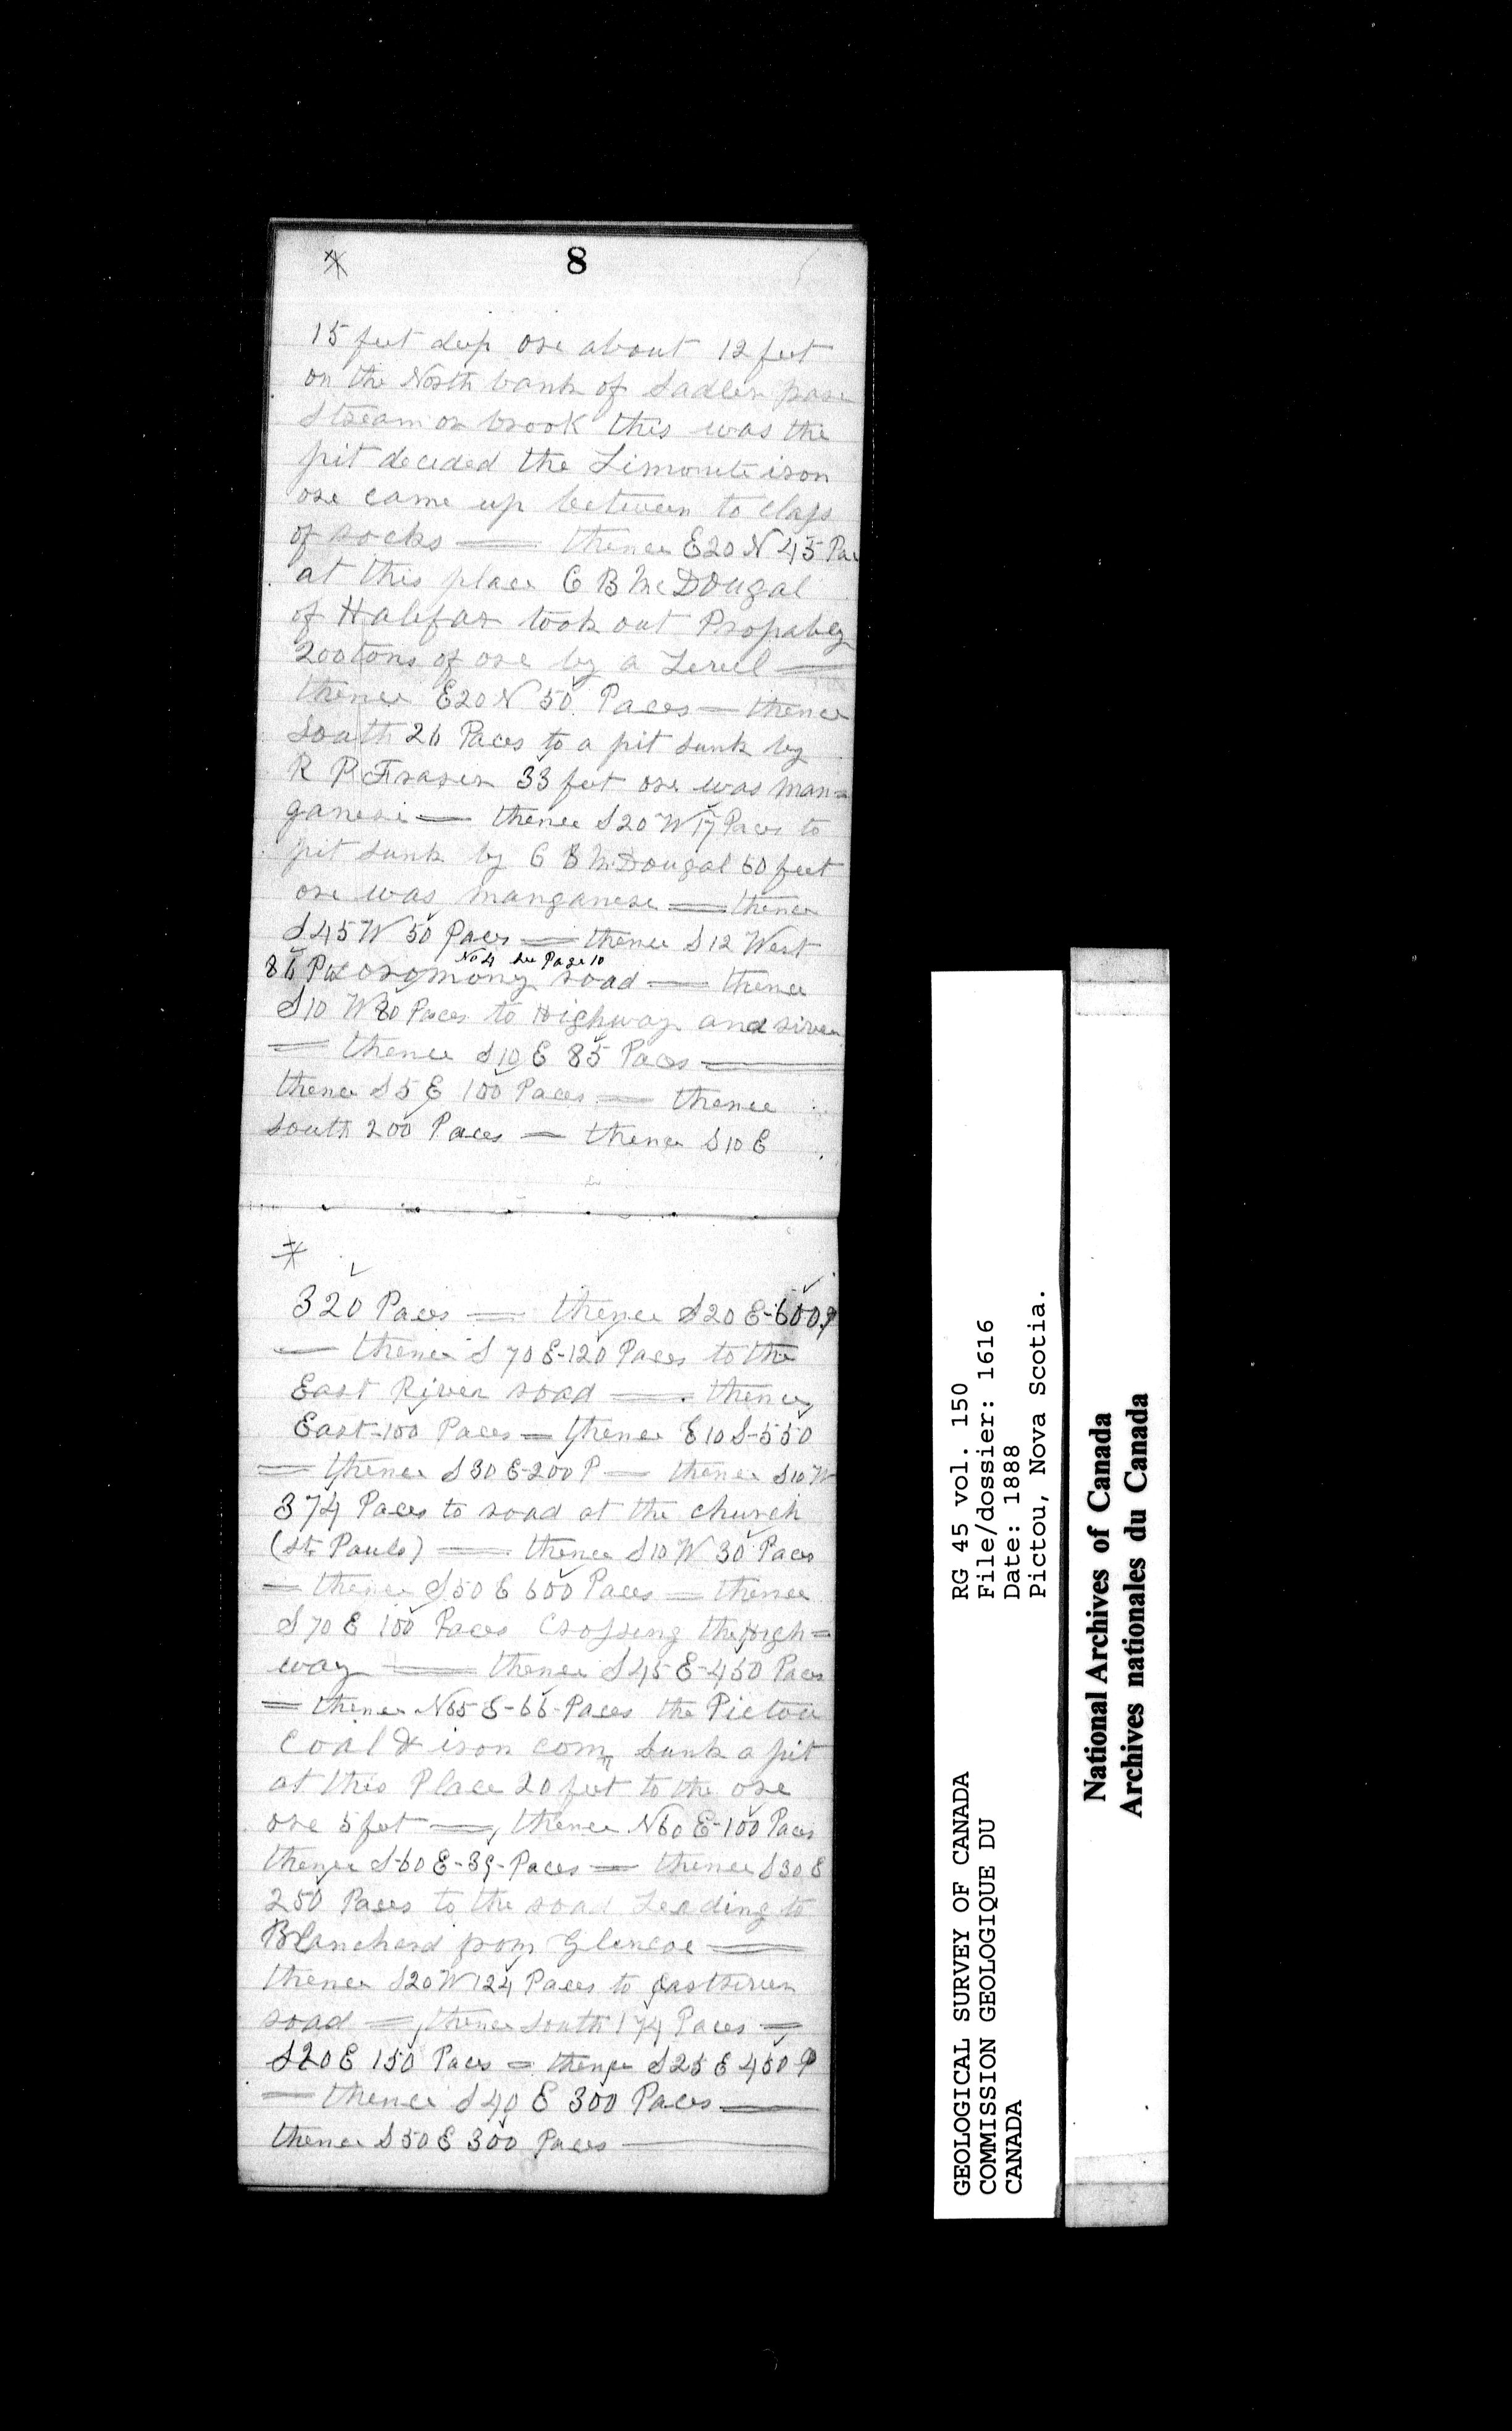 8
15 feet deep ore about 12 feet
on the North bank of Sadler
Stream or brook this was the
pit decided the Limonite iron
ore came up between to Clays
of rocks — thence E20N 45
at this place C B McDougal
of Halifax took out Propabley
200 tons of ore by a Level —
thence E20N 50 Paces — thence
South 26 Paces to a pit Sunk by
R P Fraser 33 feet ore was man=
ganese — thence S20W 17 Paces to
pit Sunk by C B McDougal 60 feet
ore was manganese — thence
S45W 50 Paces — thence S12 West
No 4 See Page 10
86 road — thence
S10W 80 Paces to Highway and river
— thence S10E 85 Paces —
thence S5E 100 Paces — thence
South 200 Paces — thence S10E
320 Paces — thence S20E-600 P
— thence S70E-120 Paces to the
East River road — thence
East-100 Paces — thence E10S-550
= thence S30E-200P — thence S10W
374 Paces to road at the church
(St Pauls) — thence S10W 30 Paces
— thence S50E 600 Paces — thence
S70E 100 Paces Crossing the High=
way — thence S45E-450 Paces
= thence N65E-66-Paces the Pictou
Coal & iron comn Sunk a pit
at this Place 20 feet to the ore
ore 5 feet —, thence N60E-100 Paces
thence S60E-39-Paces — thence S30E
250 Paces to the road Leading to
Blanchard from Glencoe —
thence S20W 124 Paces to East River
road —, thence South 174 Paces —
S20E 150 Paces = thence S25E 450 P
— thence S40E 300 Paces —
thence S50E 300 Paces —
RG 45 vol. 150
File/dossier: 1616
Date: 1888
Pictou, Nova Scotia.
GEOLOGICAL SURVEY OF CANADA
COMMISSION GEOLOGIQUE DU
CANADA
National Archives of Canada
Archives nationales du Canada